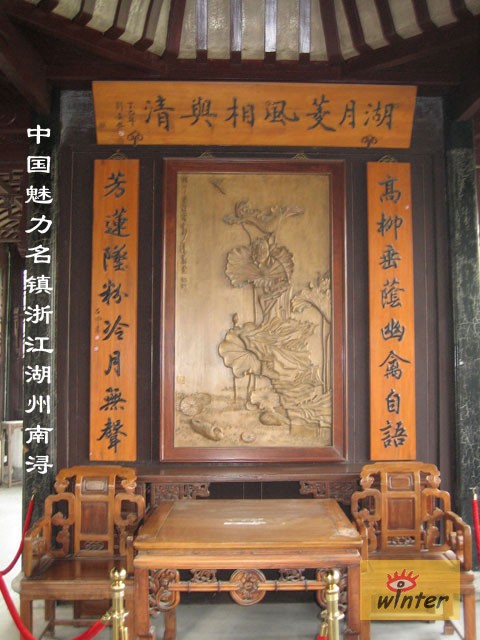 湖月菱風相與清
高柳垂蔭幽禽自語
芳蓮墜粉冷月無聲
中国魅力名镇浙江湖州南浔
winter